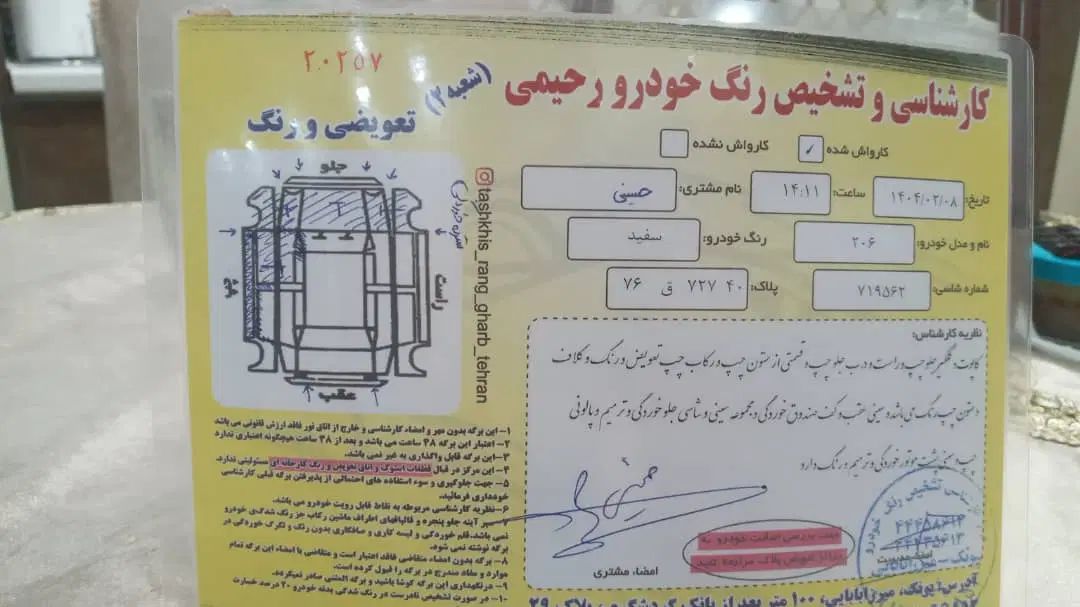 ۲۰۲۵۷
کارشناسی و تشخیص رنگ خودرو رحیمی
(شعبه ۲)
تعویضی و رنگ
کارواش شده ✓ کارواش نشده
تاریخ: ۱۴۰۴/۰۲/۰۸ ساعت: ۱۴:۱۱ نام مشتری: حسینی
نام و مدل خودرو: ۲۰۶ رنگ خودرو: سفید
شماره شاسی: ۷۱۹۵۶۲ پلاک: ۴۰ ۷۲۷ ق ۷۶
جلو
راست
چپ
عقب
tashkhis_rang_gharb_tehran
نظریه کارشناس:
کاپوت و گلگیر جلو چپ و راست و درب جلو چپ و قسمتی از ستون چپ و رکاب چپ تعویض و رنگ و کلاف
و ستون چپ رنگ می باشد و سینی عقب و کف صندوق خوردگی و مجموعه سینی و شاسی جلو خوردگی و ترمیم و پالونی
چپ و سینی پشت موتور خوردگی و ترمیم و رنگ دارد
امضاء مشتری
جهت بررسی اصالت خودرو به
مراکز تعویض پلاک مراجعه کنید
۱- این برگه بدون مهر و امضاء کارشناسی و خارج از اتاق نور فاقد ارزش قانونی می باشد
۲- اعتبار این برگه ۴۸ ساعت می باشد و بعد از ۴۸ ساعت هیچگونه اعتباری ندارد
۳- این برگه قابل واگذاری به غیر نمی باشد.
۴- این مرکز در قبال قطعات استوک و اتاق تعویض و رنگ کارخانه ای مسئولیتی ندارد.
۵- جهت جلوگیری و سوء استفاده های احتمالی از پذیرفتن برگه قبلی کارشناسی
خودداری فرمائید.
۶- نظریه کارشناسی مربوطه به نقاط قابل رویت خودرو می باشد.
۷- سپر آینه جلو پنجره و قالپاقهای اطراف ماشین رکاب جز رنگ شدگی خودرو
نمی باشد. قلم خوردگی و لیسه کاری و صافکاری بدون رنگ و تگرگ خوردگی در
برگه نوشته نمی شود.
۸- برگه بدون امضاء متقاضی فاقد اعتبار است و متقاضی با امضاء این برگه تمام
موارد و مفاد مندرج در برگه را قبول کرده است.
۹- درنگهداری این برگه کوشا باشید و برگه المثنی صادر نمیگردد.
۱۰- در صورت تشخیص نادرست در رنگ شدگی بدنه خودرو ۲۰ درصد خسارت
آدرس: پونک، میرزابابایی، ۱۰۰ متر بعد از بانک گردشگری، پلاک ۲۹